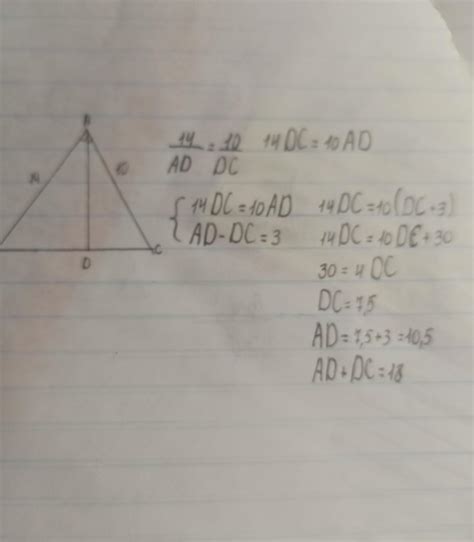 B
14
10
D
C
14/AD = 10/DC 14DC = 10AD
{ 14DC = 10AD
AD - DC = 3
14DC = 10(DC + 3)
14DC = 10DC + 30
30 = 4DC
DC = 7,5
AD = 7,5 + 3 = 10,5
AD + DC = 18